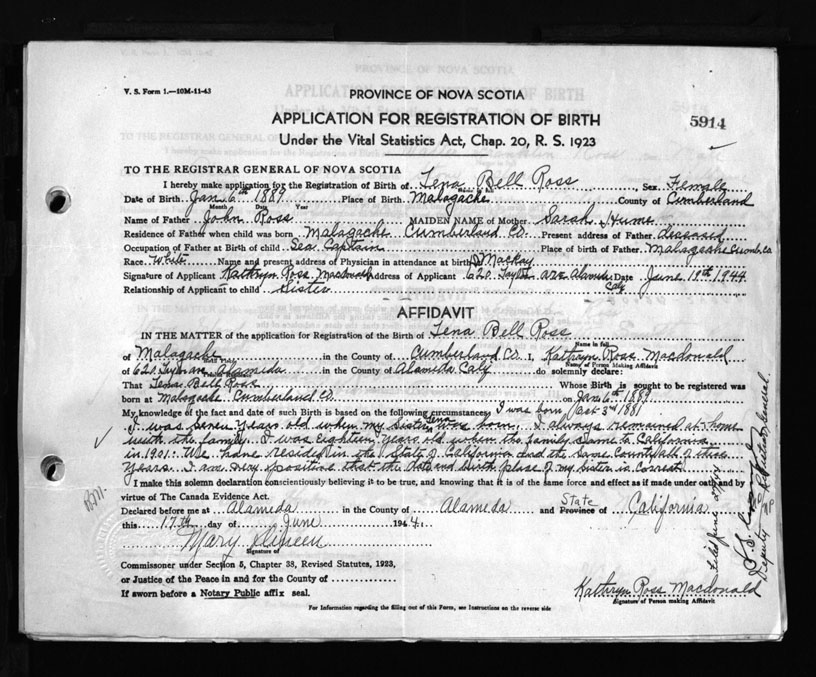 V. S. Form 1.—10M-11-43
PROVINCE OF NOVA SCOTIA
APPLICATION FOR REGISTRATION OF BIRTH
5914
Under the Vital Statistics Act, Chap. 20, R. S. 1923
TO THE REGISTRAR GENERAL OF NOVA SCOTIA
I hereby make application for the Registration of Birth of Tena Bell Ross, Sex Female
Date of Birth Jan 6th 1889 Place of Birth Malagache County of Cumberland
Month Date Year
Name of Father John Ross MAIDEN NAME of Mother Sarah Hume
Residence of Father when child was born Malagache Cumberland Co. Present address of Father deceased
Occupation of Father at Birth of child Sea Captain Place of birth of Father Malagache Cumb. Co
Race White Name and present address of Physician in attendance at birth Mackay
Signature of Applicant Kathryn Ross Macdonald Address of Applicant 620 Taylor ave Alameda Calif Date June 19th 1944
Relationship of Applicant to child Sister
AFFIDAVIT
IN THE MATTER of the application for Registration of the Birth of Tena Bell Ross
Name in full
of Malagache in the County of Cumberland Co. I, Kathryn Ross Macdonald
Name of Person Making Affidavit
of 620 Taylor ave Alameda in the County of Alameda Calif do solemnly declare:
That Tena Bell Ross Whose Birth is sought to be registered was
born at Malagache Cumberland Co. on Jan 6th 1889
My knowledge of the fact and date of such Birth is based on the following circumstances: I was born Oct 3rd 1881
I was seven years old when my Sister Tena was born. I always remained at home
with the family. I was Eighteen years old when the family came to California
in 1901. We have resided in the State of California and the same County all of these
years. I am very positive that the date and birth place of my sister is Correct.
I make this solemn declaration conscientiously believing it to be true, and knowing that it is of the same force and effect as if made under oath and by
virtue of The Canada Evidence Act.
Declared before me at Alameda in the County of Alameda and State Province of California
this 17th day of June 1944.
Mary
Signature of
Commissioner under Section 5, Chapter 38, Revised Statutes, 1923,
or Justice of the Peace in and for the County of
If sworn before a Notary Public affix seal.
Kathryn Ross Macdonald
Signature of Person making Affidavit
For Information regarding the filling out of this Form, see Instructions on the reverse side
Deputy Registrar General